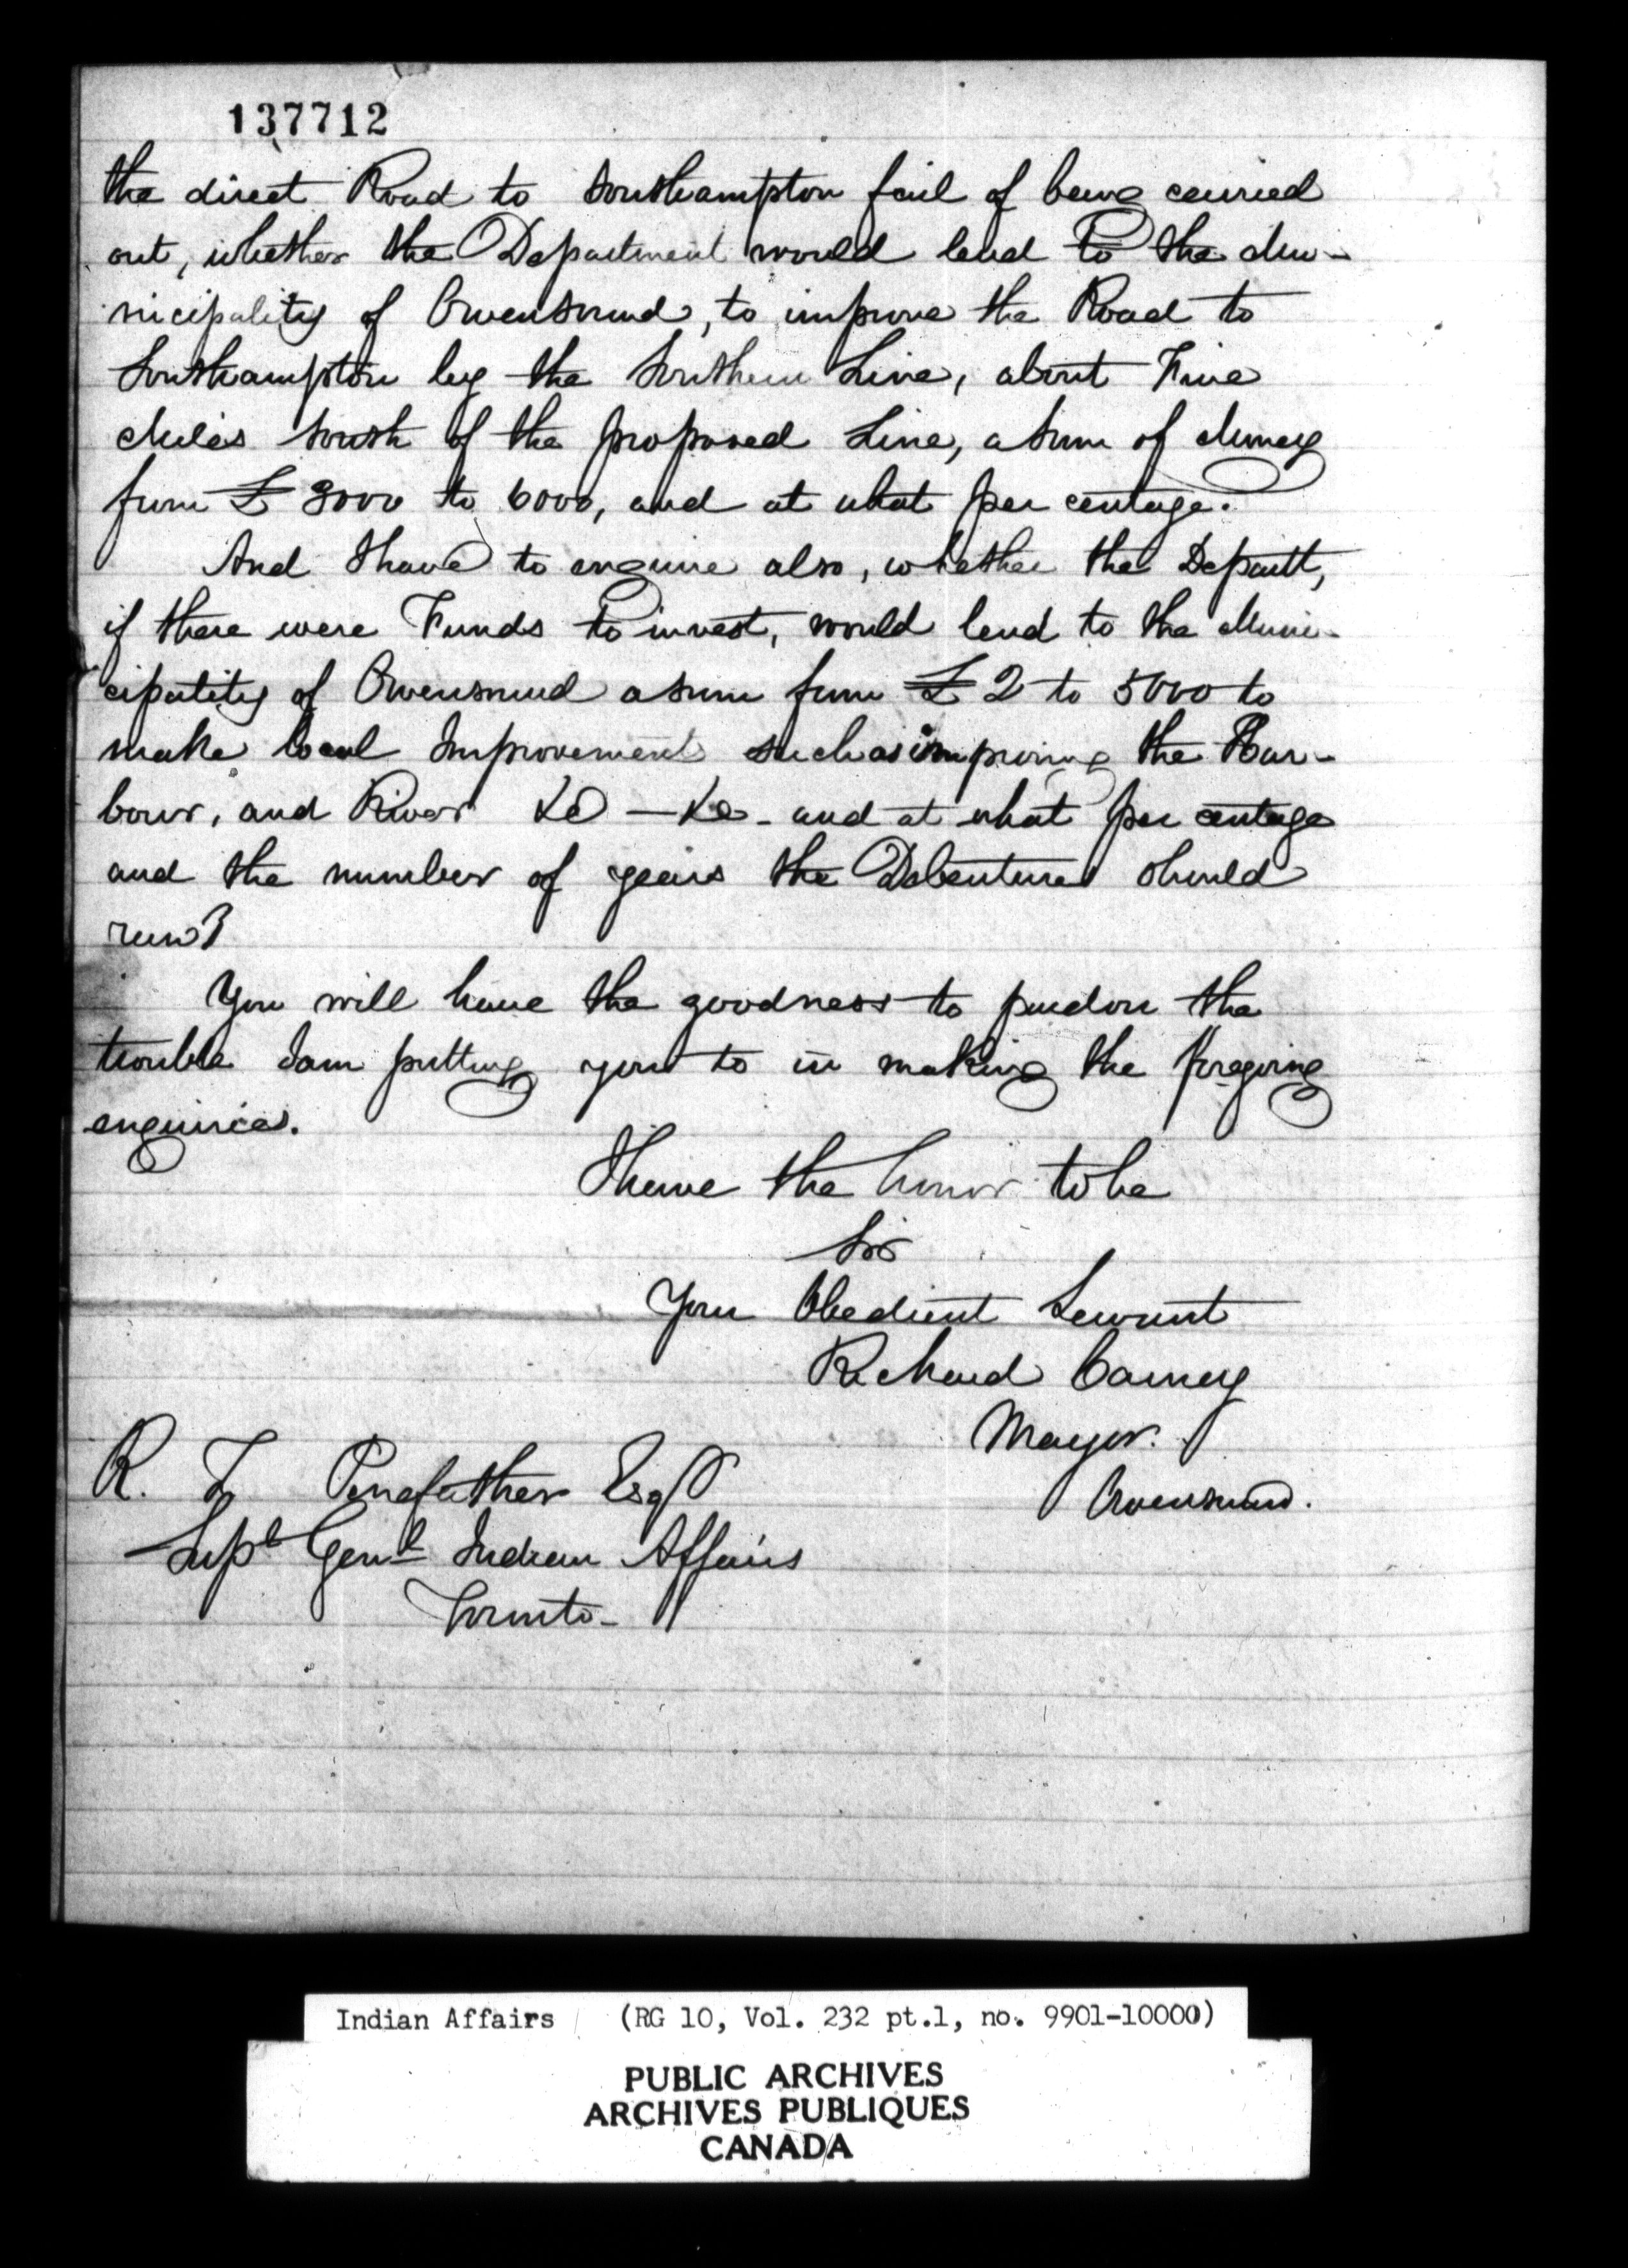 137712
the direct Road to Southampton fail of being carried
out, whether the Department would lend to the Mu-
nicipality of Owensound, to improve the Road to
Southampton by the Southern Line, about Five
Miles South of the proposed Line, a Sum of Money
from £ 3000 to 6000, and at what per centage.
And I have to enquire also, whether the Departt,
if there were Funds to invest, would lend to the Muni-
cipality of Owensound a sum from £ 2 to 5000 to
make local Improvements such as improving the Har-
bour, and River &c - &c - and at what per centage
and the number of years the Debentures should
run?
You will have the goodness to pardon the
trouble I am putting you to in making the foregoing
enquiries.
I have the honor to be
Sir
Your Obedient Servant
Richard Carney
Mayor.
Owensound.
R. T Penefather Esqr
Supt Genl Indian Affairs
Toronto-
Indian Affairs (RG 10, Vol. 232 pt.1, no. 9901-10000)
PUBLIC ARCHIVES
ARCHIVES PUBLIQUES
CANADA